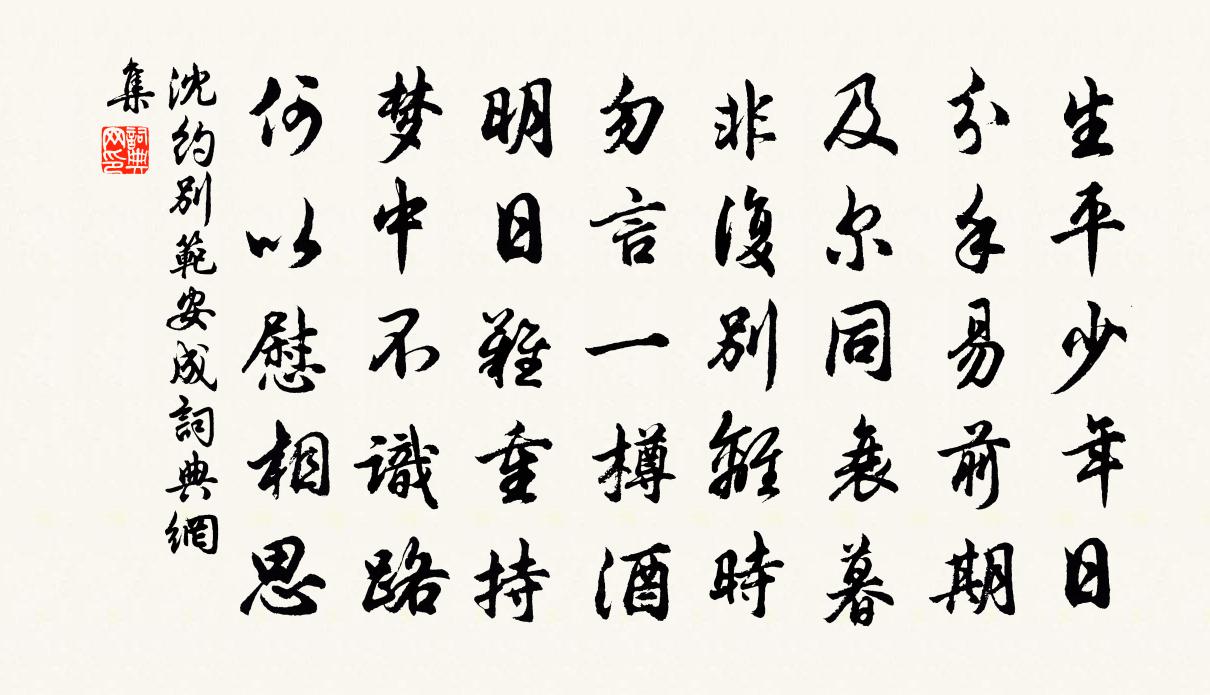 生平少年日
分手易前期
及尔同衰暮
非復别離時
勿言一樽酒
明日難重持
梦中不識路
何以慰相思
沈約别範安成詞典網
集
詞典网印